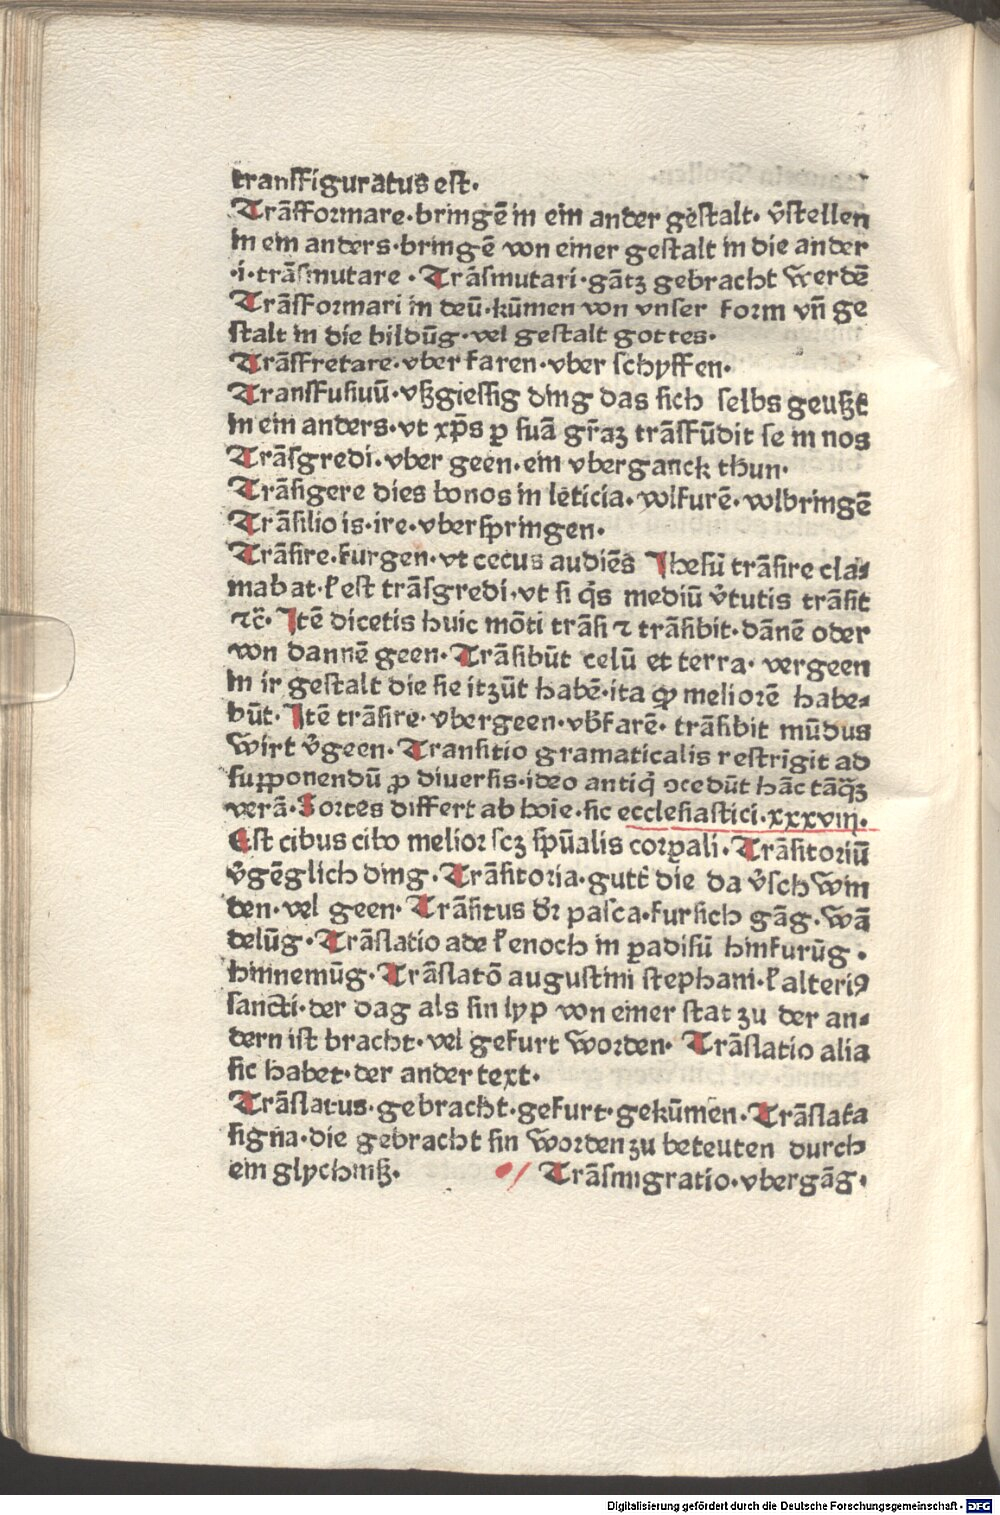 transfiguratus est·
Trāsformare·bringē in ein ander gestalt· v̄stellen
in ein anders·bringē von einer gestalt in die ander
·i·trāsmutare·Trāsmutari·gātz gebracht werdē
Trāsformari in deū·kūmen von vnser form vn̄ ge
stalt in die bildūg·vel gestalt gottes·
Trāsfretare·vber faren·vber schyffen·
Transfusiuū·vßgiessig ding das sich selbs geußt
in ein anders·vt xp̄s ꝑ suā gr̄aꝫ trāsfūdit se in nos
Trāsgredi·vber geen·ein vberganck thun·
Trāsigere dies bonos in leticia·volfurē·volbringē
Trāsilio is·ire·vberspringen·
Trāsire·furgen·vt cecus audiēs Jhesū trāsire cla⸗
mabat·ł est trāsgredi·vt si q̄s mediū v̄tutis trāsit
⁊c̄·Jtē dicetis huic mōti trāsi ⁊ trāsibit·dānē oder
von dannē geen·Trāsibūt celū et terra·vergeen
in ir gestalt die sie itzūt habē·ita ꝙ meliorē habe⸗
būt·Jtē trāsire·vbergeen·vb̄farē·trāsibit mūdus
wirt v̄geen·Transitio gramaticalis restrīgit ad
supponendū ꝓ diuersis·ideo antiq̄ ↄcedūt hāc tāq̄ꝫ
verā·Sortes differt ab hoīe·sic ecclesiastici·xxxviij·
Est cibus cibo melior scꝫ sp̄ualis corꝑali·Trāsitoriū
v̄gēglich ding·Trāsitoria·gutt̄ die da v̄schwin
den·vel geen·Trāsitus dr̄ pasca·fursich gāg·wā
delūg·Trāslatio ade ł enoch in ꝑadisū hinfurūg·
hinnemūg·Trāslatō augustini stephani·ł alteriꝰ
sancti·der dag als sin lyp von einer stat zu der an⸗
dern ist bracht·vel gefurt worden·Trāslatio alia
sic habet·der ander text·
Trāslatus·gebracht·gefurt·gekūmen·Trāslata
signa·die gebracht sin worden zu beteuten durch
ein glychniß·
Trāsmigratio·vbergāg·
Digitalisierung gefördert durch die Deutsche Forschungsgemeinschaft - DFG